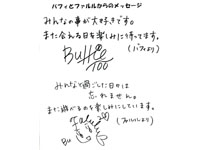 バフィとファルルからのメッセージ
みんなの事が大好きです。
また会える日を楽しみに待ってます。
Buffie
(バフィより)
100
みんなと過ごした日々は
忘れません。
また遊べるのを楽しみにしています。
(ファルルより)